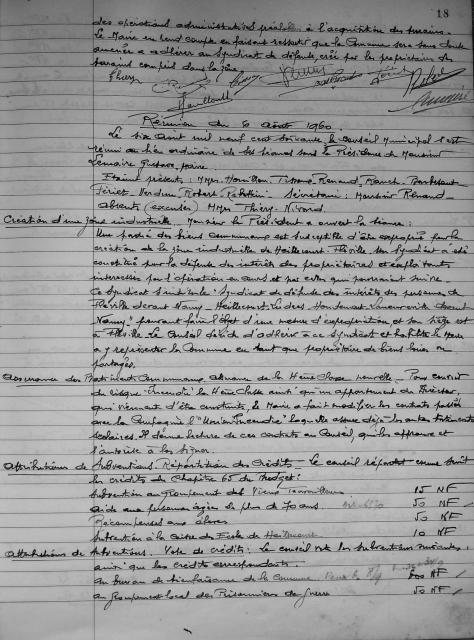 18
des opérations administratives préalables à l'acquisition des terrains.
Le Maire en rend compte en faisant ressortir que la Commune sera sans doute
amenée à adhérer au Syndicat de défense, créé par les propriétaires des
terrains compris dans la zone.
Réunion du 6 Août 1960
Le six Août mil neuf cent soixante le Conseil Municipal s'est
réuni au lieu ordinaire de ses séances sous la Présidence de Monsieur
Lemaire Gustave, maire.
Étaient présents : M.M. Renand
Verdun Robert Secrétaire : Monsieur Renand
Absents (excusés) M.M. Thiery - Nivard.
Création d'une zone industrielle. Monsieur le Président a ouvert la séance :
Une partie des biens communaux est susceptible d'être expropriée pour la
création de la zone industrielle de Heillecourt Fléville. Un Syndicat a été
constitué pour la défense des intérêts des propriétaires et exploitants
intéressés par l'opération en cours et par celles qui pourraient suivre.
Ce Syndicat s'intitule "Syndicat de défense des intérêts des personnes de
Fléville devant Nancy - Heillecourt - Ludres Houdemont - Laneuveville devant
Nancy" pouvant faire l'objet d'une mesure d'expropriation et son siège est
à Fléville. Le Conseil décide d'adhérer à ce Syndicat et habilite le Maire
à y représenter la Commune en tant que propriétaire de biens loués ou
partagés.
Assurance des Bâtiments Communaux. Assurance de la 4ème Classe nouvelle - Pour couvrir
du risque Incendie la 4ème Classe ainsi qu'un appartement du Directeur
qui viennent d'être construits, le Maire a fait modifier les contrats passés
avec la Compagnie l'"Union Incendie" laquelle assure déjà les autres bâtiments
scolaires. Il donne lecture de ces contrats au Conseil qui les approuve et
l'autorise à les signer.
Attributions de Subventions. Répartition des Crédits - Le conseil répartit comme suit
les crédits du Chapitre 65 du Budget :
Subvention au Groupement des Vieux Travailleurs 15 NF
aide aux personnes âgées de plus de 70 ans. 50 NF
Récompenses aux élèves 50 NF
Subvention à la Caisse des Ecoles de Heillecourt 10 NF
Attributions de Subventions. Vote de crédits : Le conseil vote les subventions suivantes,
ainsi que les crédits correspondants.
au bureau de bienfaisance de la Commune 500 NF
au groupement local des Prisonniers de guerre 50 NF